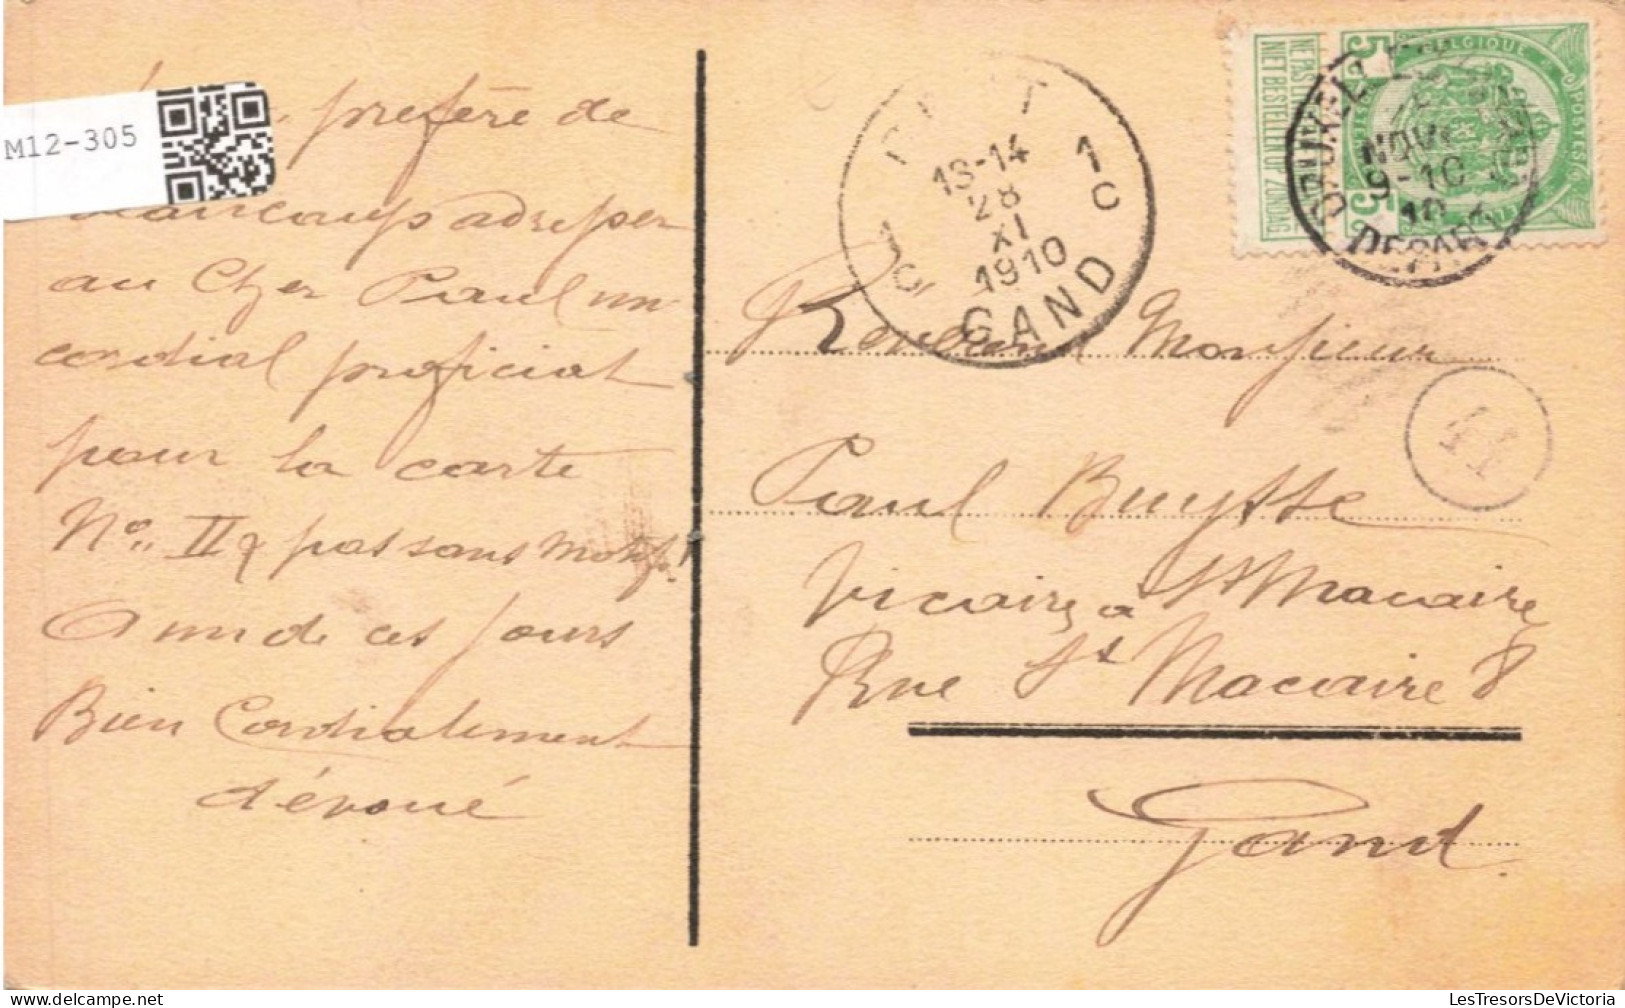 M12-305
préfère de
beaucoup adresser
au Cher Paul un
cordial proficiat
pour la carte
No II & pas sans motif!
A un de ces jours
Bien Cordialement
dévoué
GENT
13-14
28
XI
1910
GAND
1
C
1
C
NE PAS
NIET BESTELLEN OP ZONDAG
BELGIQUE
POSTES
5
5
BRUXELLES
NOV
9-10
1910
DEPART
Révérend Monsieur
Paul Buysse
vicaire à St Macaire
Rue St Macaire 8
Gand
LesTresorsDeVictoria